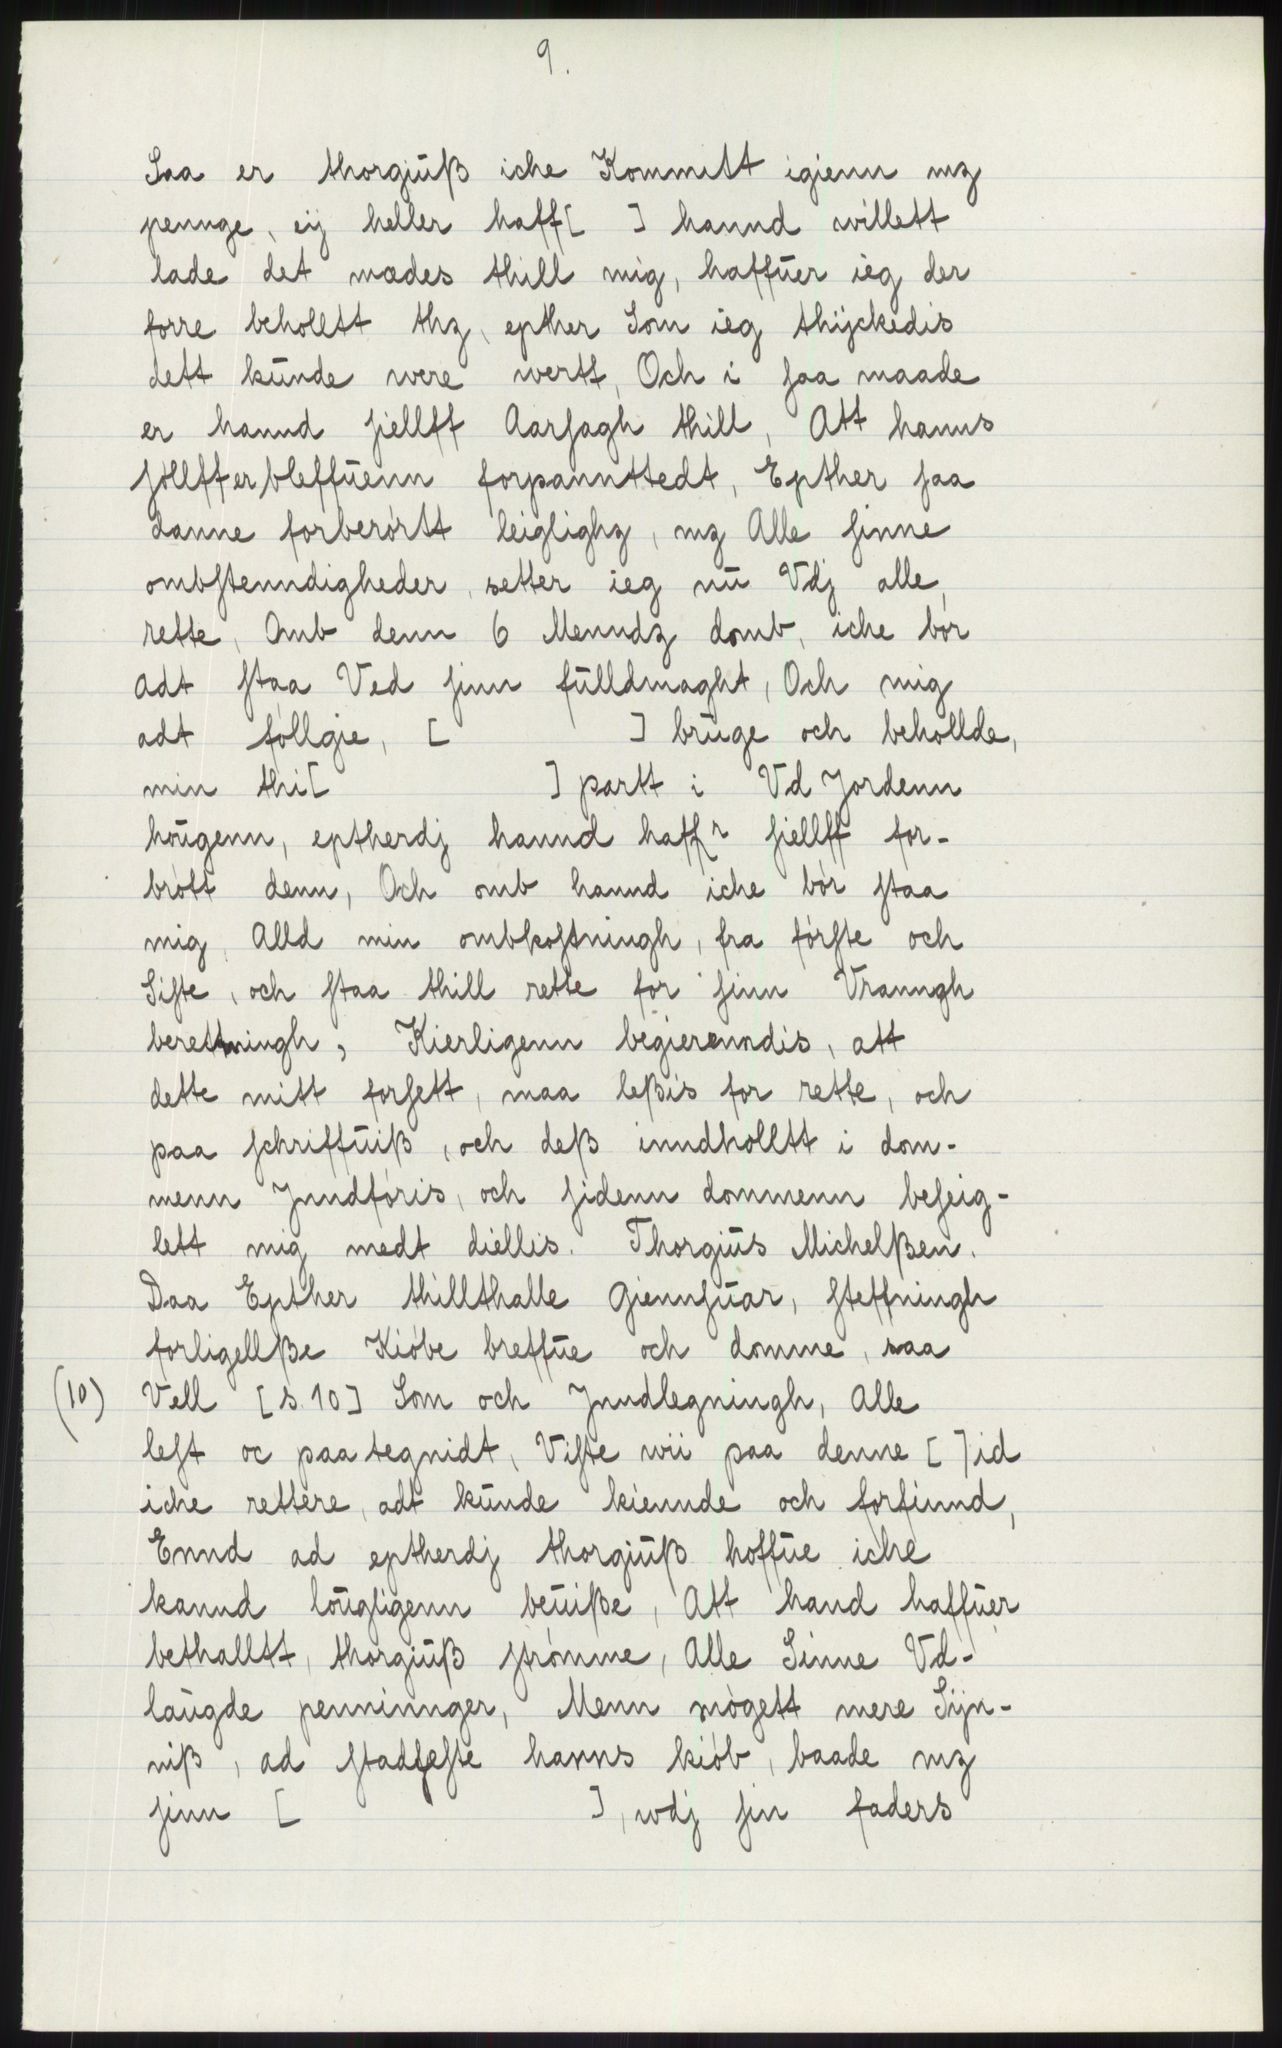 9.
Saa er thorgiuß iche Kommitt igienn mz
pennge, eij heller haff[ ] hannd willett
lade det mødes thill mig, haffuer ieg der
forre behollett thz, epther Som ieg thijckedis
dett kunde were wertt, Och i saa maade
er hannd siellff Aarsagh thill, Att hanns
söllffer bleffuenn forpannttedt, Epther saa
danne forberörtt leiglighz, mz Alle sinne
ombstenndigheder, setter ieg nu Vdj alle,
rette, Omb denn 6 Menndz domb, iche bör
adt staa Ved sinn fulldmaght, Och mig
adt föllgie, [ ] bruge och behollde,
min thi[ ] partt i Vd Jordenn
hougenn, eptherdj hannd haffr siellff for-
brött denn, Och omb hannd iche bör staa
mig, Alld min ombkostningh, fra förste och
Siste, och staa thill rette for sinn Vranngh
berettningh, Kierligenn begierenndis, att
dette mitt forsett, maa leßis for rette, och
paa schriffuiß, och deß inndholltt i dom-
menn Jnndföris, och sidenn dommenn beseig-
lett mig medt diellis. Thorgius Michelßen.
Daa Epther thillthalle Giennsuar, steffningh
forligellße Kiöbe breffue och domme, saa
(10) Vell [s. 10] Som och Jnndlegningh, Alle
lest oc paa tegnidt, Viste wii paa denne [ ]id
iche rettere, adt kunde kiennde och forfinnd,
Ennd ad eptherdj thorgiuß hoffue iche
kannd lougligenn beuiße, Att hand haffuer
bethalltt, thorgiuß strömme, Alle Sinne Vd-
laugde penninnger, Menn mögett mere Sijn-
niß, ad stadfeste hanns kiöb, baade mz
sinn [ ], wdj sin faders